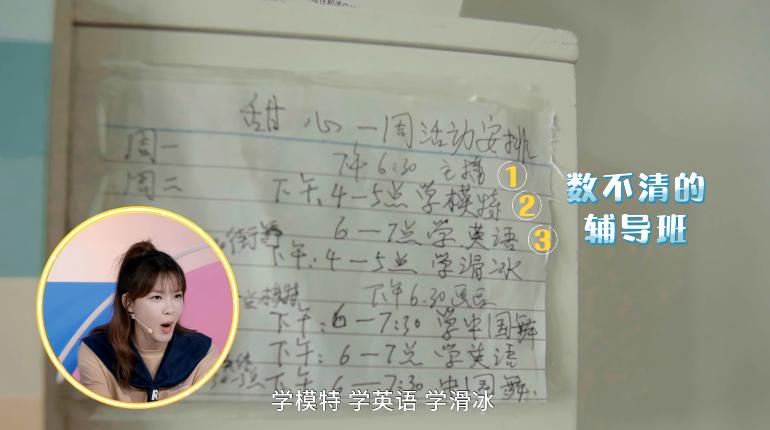 甜心一周活动安排
周一 下午6:30 主持 1
周二 下午:4-5点学模特 2
6-7点学英语 3
下午:4-5点 学滑冰
下午6:30
下午:6-7:30 学中国舞
下午:6-7点 学英语
下午 6-7:30 中国舞
数不清的
辅导班
R
学模特 学英语 学滑冰